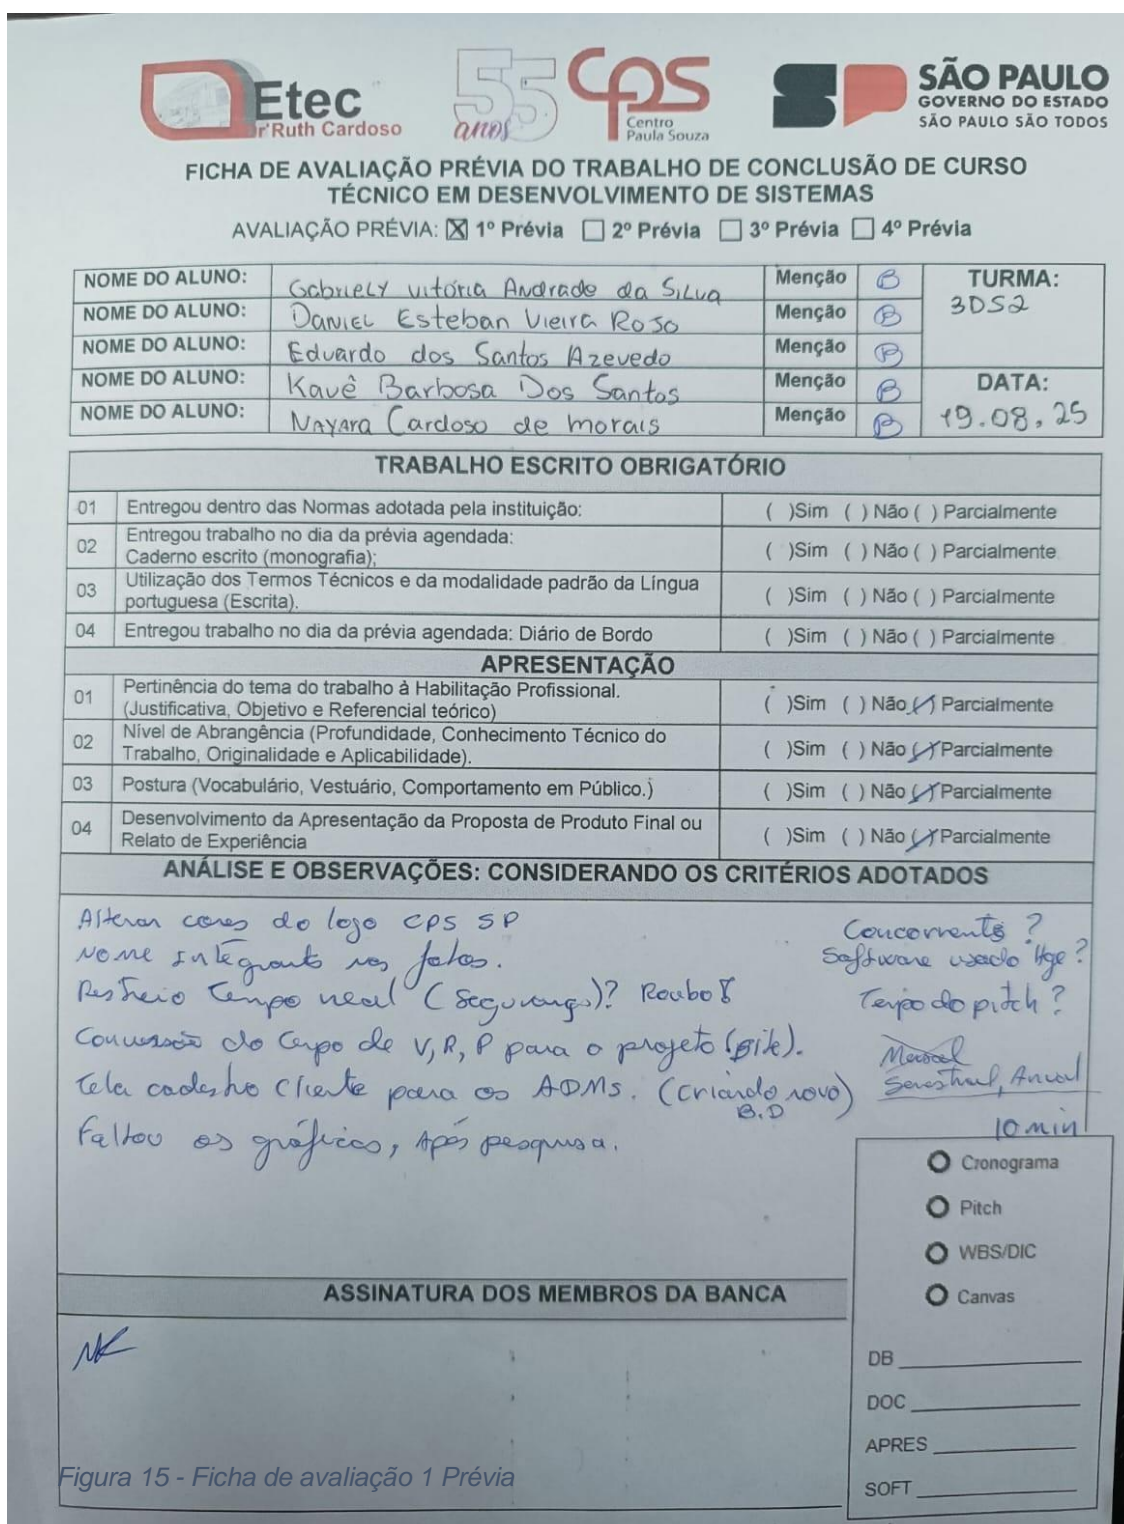 Etec
Drª Ruth Cardoso
55
anos
CPS
Centro
Paula Souza
SÃO PAULO
GOVERNO DO ESTADO
SÃO PAULO SÃO TODOS
FICHA DE AVALIAÇÃO PRÉVIA DO TRABALHO DE CONCLUSÃO DE CURSO
TÉCNICO EM DESENVOLVIMENTO DE SISTEMAS
AVALIAÇÃO PRÉVIA: ☒ 1º Prévia ☐ 2º Prévia ☐ 3º Prévia ☐ 4º Prévia
NOME DO ALUNO: Gabriely Vitória Andrade da Silva Menção B
NOME DO ALUNO: Daniel Esteban Vieira Rojo Menção B
NOME DO ALUNO: Eduardo dos Santos Azevedo Menção B
NOME DO ALUNO: Kauê Barbosa Dos Santos Menção B
NOME DO ALUNO: Nayara Cardoso de morais Menção B
TURMA:
3DS2
DATA:
19.08.25
TRABALHO ESCRITO OBRIGATÓRIO
01 Entregou dentro das Normas adotada pela instituição: ( )Sim ( ) Não ( ) Parcialmente
02 Entregou trabalho no dia da prévia agendada:
Caderno escrito (monografia); ( )Sim ( ) Não ( ) Parcialmente
03 Utilização dos Termos Técnicos e da modalidade padrão da Língua
portuguesa (Escrita). ( )Sim ( ) Não ( ) Parcialmente
04 Entregou trabalho no dia da prévia agendada: Diário de Bordo ( )Sim ( ) Não ( ) Parcialmente
APRESENTAÇÃO
01 Pertinência do tema do trabalho à Habilitação Profissional.
(Justificativa, Objetivo e Referencial teórico) ( )Sim ( ) Não (✓) Parcialmente
02 Nível de Abrangência (Profundidade, Conhecimento Técnico do
Trabalho, Originalidade e Aplicabilidade). ( )Sim ( ) Não (✓) Parcialmente
03 Postura (Vocabulário, Vestuário, Comportamento em Público.) ( )Sim ( ) Não (✓) Parcialmente
04 Desenvolvimento da Apresentação da Proposta de Produto Final ou
Relato de Experiência ( )Sim ( ) Não (✓) Parcialmente
ANÁLISE E OBSERVAÇÕES: CONSIDERANDO OS CRITÉRIOS ADOTADOS
Alterar cores do logo CPS SP
Nome Integrante nas fotos.
Tempo real (Segurança)? Roubo
do de V, R, P para o projeto (site).
Tela cadastro Cliente para os ADMs. (Criando novo)
B.D
Faltou os gráficos, Após pesquisa.
Concorrente ?
Software usado ?
Tempo do pitch ?
Mensal
Semestral, Anual
10 min
Cronograma
Pitch
WBS/DIC
Canvas
DB
DOC
APRES
SOFT
ASSINATURA DOS MEMBROS DA BANCA
Figura 15 - Ficha de avaliação 1 Prévia